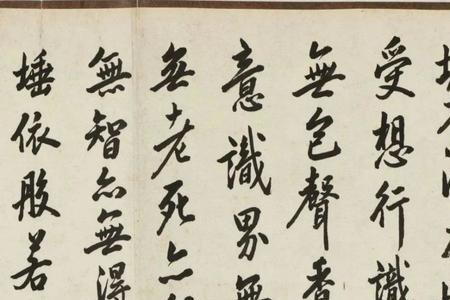 受想行識
無色聲香
意識界無
無老死亦
無智亦無得
埵依般若